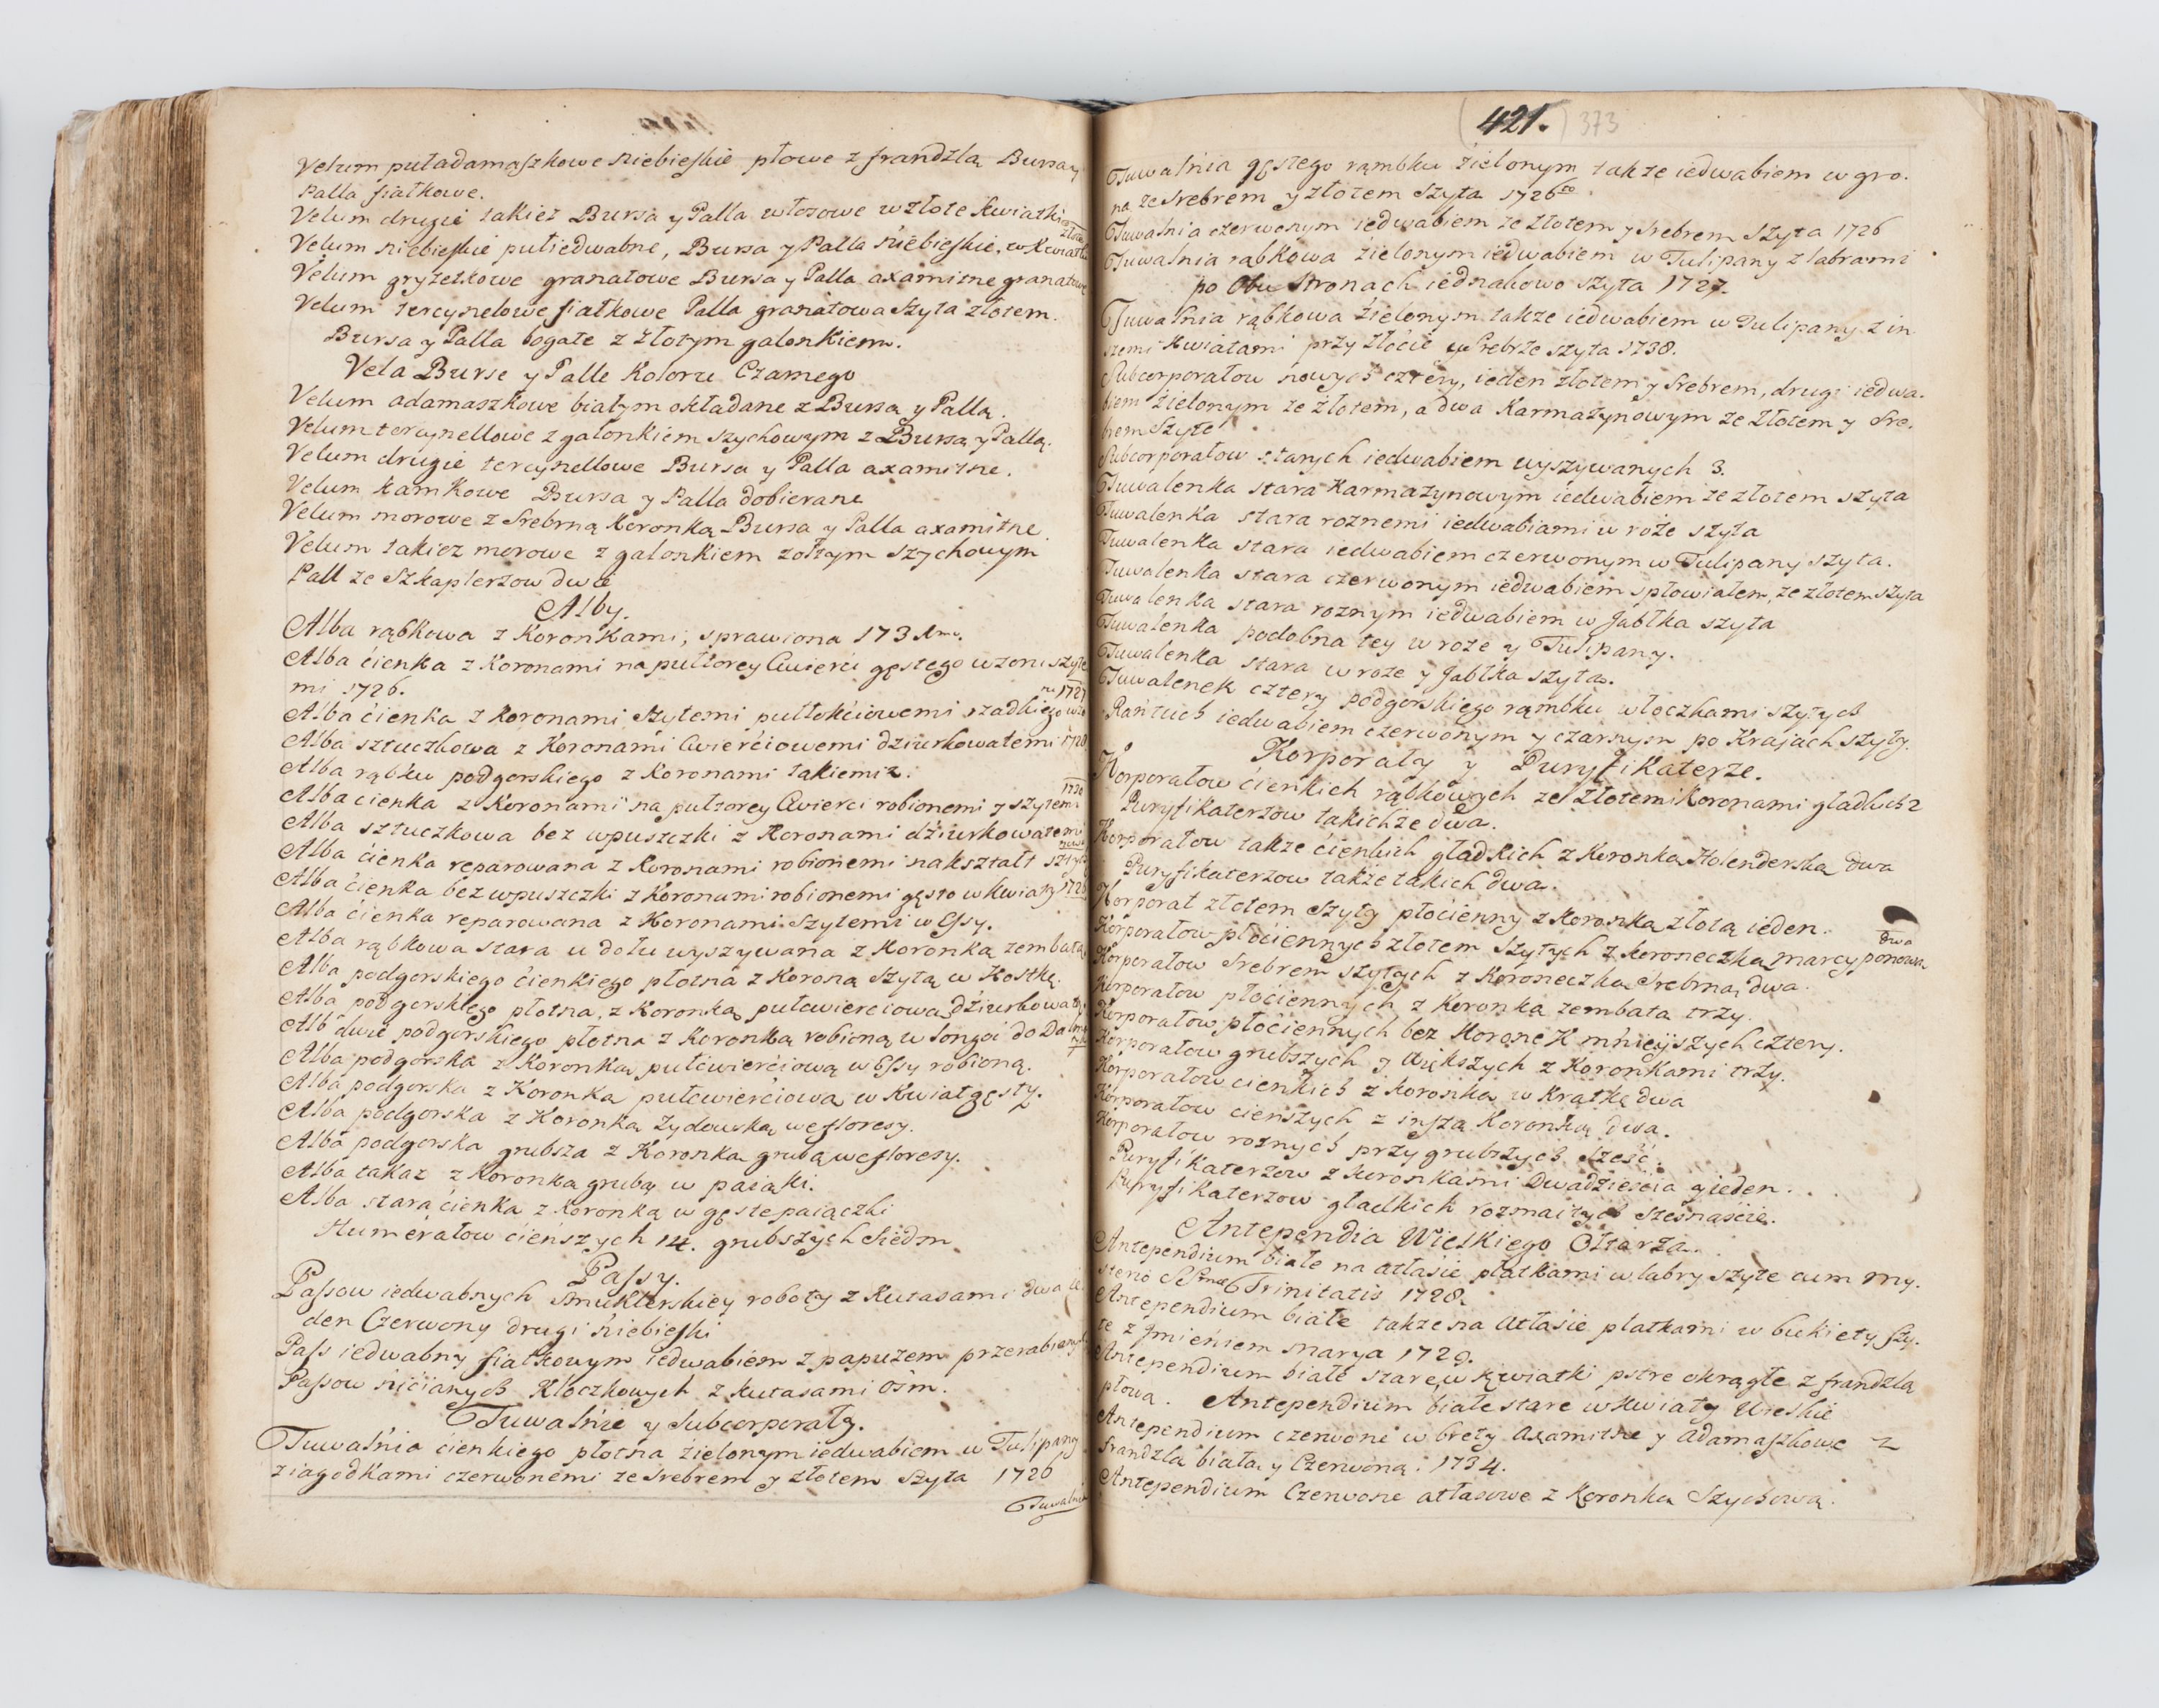 Velum puładamaszkowe niebieskie płowe z frandzlą Bursa y
Palla fiałkowe.
Velum drugie takież Bursa y Palla włosowe w złote kwiatki
Velum niebieskie pułiedwabne, Bursa y Palla niebieskie, w kwiatki złote
Velum gryzetkowe granatowe Bursa y Palla axamitne granatowe
Velum tercynelowe fiałkowe Palla granatowa szyta złotem.
Bursa y Palla bogate z złotym galonkiem.
Vela Burse y Palle Koloru Czarnego
Velum adamaszkowe białym okładane z Bursą y Pallą.
Velum tercynellowe z galonkiem szychowym z Bursą y Pallą.
Velum drugie tercynellowe Bursa y Palla axamitne.
Velum kamkowe Bursa y Palla dobierane
Velum morowe z Srebrną Koronką Bursa y Palla axamitne.
Velum takiez morowe z galonkiem zołtym szychowym
Pall ze Szkaplerzow dwie
Alby.
Alba rąbkowa z Koronkami, sprawiona
Alba cienka z Koronami na pułtorey Cwierci gęstego wzoru szyte
mi 1726.
Alba cienka z Koronami szytemi pułłokciowemi rzadkiego wzo
ru 1727
Alba sztuczkowa z Koronami Cwierciowemi dziurkowatemi 1728
Alba rąbku podgorskiego z Koronami takiemiz.
Alba cienka z Koronami na pułtorey Cwierci robionemi y szytemi 1730
Alba sztuczkowa bez wpuszczki z Koronami dziurkowatemi
Alba cienka reparowana z Koronami robionemi nakształt
Alba cienka bez wpuszczki z Koronami robionemi gęsto w kwiaty 1726
Alba cienka reparowana z Koronami szytemi w Essy.
Alba rąbkowa stara u dołu wyszywana z Koronką zembatą
Alba podgorskiego cienkiego płotna z Koroną szytą w Kostkę.
Alba podgorskiego płotna, z Koronką pułcwierciową dziurkowatą
Alb dwie podgorskiego płotna z Koronką robioną w longoi do
Alba podgorska z Koronką pułcwierciową w Essy robioną.
Alba podgorska z Koronką pułcwierciową w Kwiat gęsty.
Alba podgorska z Koronką Zydowską we floresy.
Alba podgorska grubsza z Koronką grubą we floresy.
Alba takaz z Koronką grubą w paiąki.
Alba stara cienka z Koronką w gęste paiączki
Humerałow cienszych 14. grubszych Siedm
Passy.
Passow iedwabnych Smuklerskiey roboty z Kutasami dwa ie
den Czerwony drugi niebieski
Pass iedwabny fiałkowym iedwabiem z papuzem przerabiany
Passow nicianych Kloczkowych z kutasami osm.
Tuwalnie y Subcorporały.
Tuwalnia cienkiego płotna zielonym iedwabiem w Tulipany
z iagodkami czerwonemi ze srebrem y złotem szyta 1726
Tuwalnia
421. 373
Tuwalnia gęstego rąmbku zielonym takze iedwabiem w gro.
na ze Srebrem y złotem Szyta 1726to
Tuwalnia czerwonym iedwabiem ze złotem y Srebrem szyta 1726
Tuwalnia rąbkowa zielonym iedwabiem w Tulipany z labrami
po obu stronach iednakowo szyta 1727.
Tuwalnia rąbkowa zielonym takze iedwabiem w Tulipany z in
szemi kwiatami przy złocie y Srebrze szyta 1738.
Subcorporałow nowych cztery, ieden złotem y Srebrem, drugi iedwa.
biem zielonym ze złotem, a dwa Karmazynowym ze złotem y Sre.
brem Szyte
Subcorporałow starych iedwabiem wyszywanych 3.
Tuwalenka stara Karmazynowym iedwabiem ze złotem szyta
Tuwalenka stara roznemi iedwabiami w roże szyta
Tuwalenka stara iedwabiem czerwonym w Tulipany szyta.
Tuwalenka stara czerwonym iedwabiem spłowiałem, ze złotem szyta
Tuwalenka stara roznym iedwabiem w Jabłka szyta
Tuwalenka podobna tey w roze y Tulipany.
Tuwalenka stara w roze y Jabłka szyta.
Tuwalenek cztery podgorskiego rąmbku włoczkami szytych
Rantuch iedwabiem czerwonym y czarnym po Krajach szyty.
Korporały y Puryfikaterze.
Korporałow cienkich rąbkowych ze złotemi Koronami gładkich 2
Puryfikaterzow takichże dwa.
Korporałow takze cienkich gładkich z Koronką Holenderską dwa
Puryfikaterzow takze takich dwa.
Korporał złotem Szyty płocienny z Koronką złotą ieden.
Korporałow płociennych złotem szytych z koroneczką marcyponową dwa
Korporałow Srebrem szytych z Koroneczką Srebrną dwa.
Korporałow płociennych z Koronką zembatą trzy.
Korporałow płociennych bez Koronek mnieyszych cztery.
Korporałow grubszych y większych z Koronkami trzy.
Korporałow cienkich z koronką w Kratkę dwa
Korporałow cienszych z inszą Koronką dwa.
Korporałow roznych przy grubszych sześć.
Puryfikaterzow z koronkami Dwadziescia y ieden.
Puryfikaterzow gładkich rozmaitych szesnaście.
Antependia Wielkiego Ołtarza.
Antependium białe na atłasie płatkami w labry szyte cum my.
sterio SSmae Trinitatis 1728.
Antependium białe takze na Atłasie płatkami w bukiety szy.
te z Jmieniem Marya 1729.
Antependium białe stare w kwiatki pstre okrągłe z frandzlą
płową. Antependium białe stare w kwiaty Wielkie
Antependium czerwone w brety Axamitne y Adamaszkowe z
frandzlą białą y Czerwoną. 1734.
Antependium Czerwone atłasowe z Koronką Szychową.